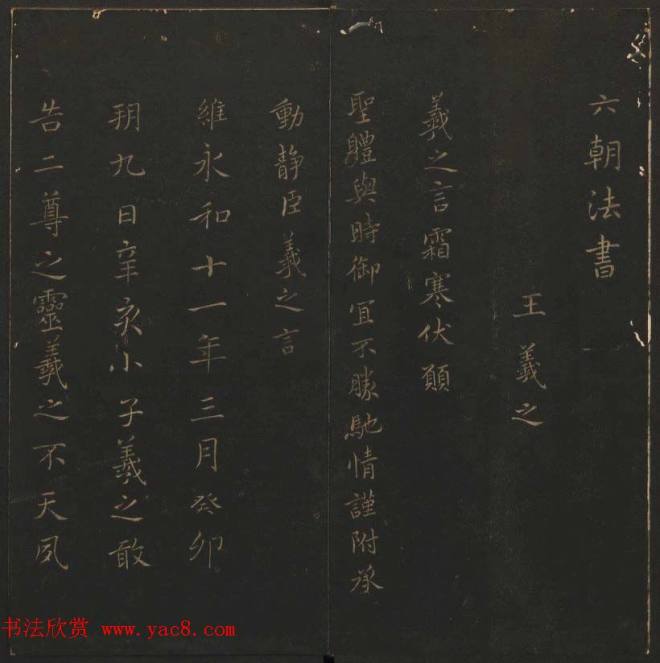 六朝法書
王羲之
羲之言霜寒伏願
聖體與時御宜不勝馳情謹附承
動靜臣羲之言
維永和十一年三月癸卯
朔九日辛亥小子羲之敢
告二尊之靈羲之不天夙
书法欣赏 www.yac8.com